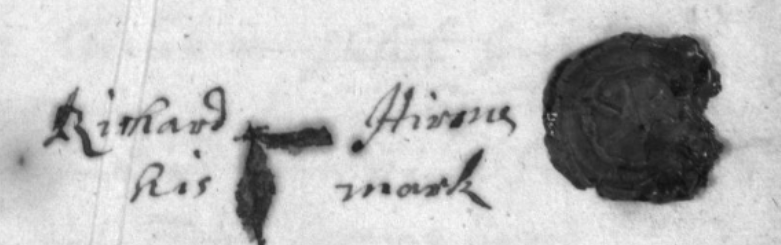 Richard Hirons
his mark